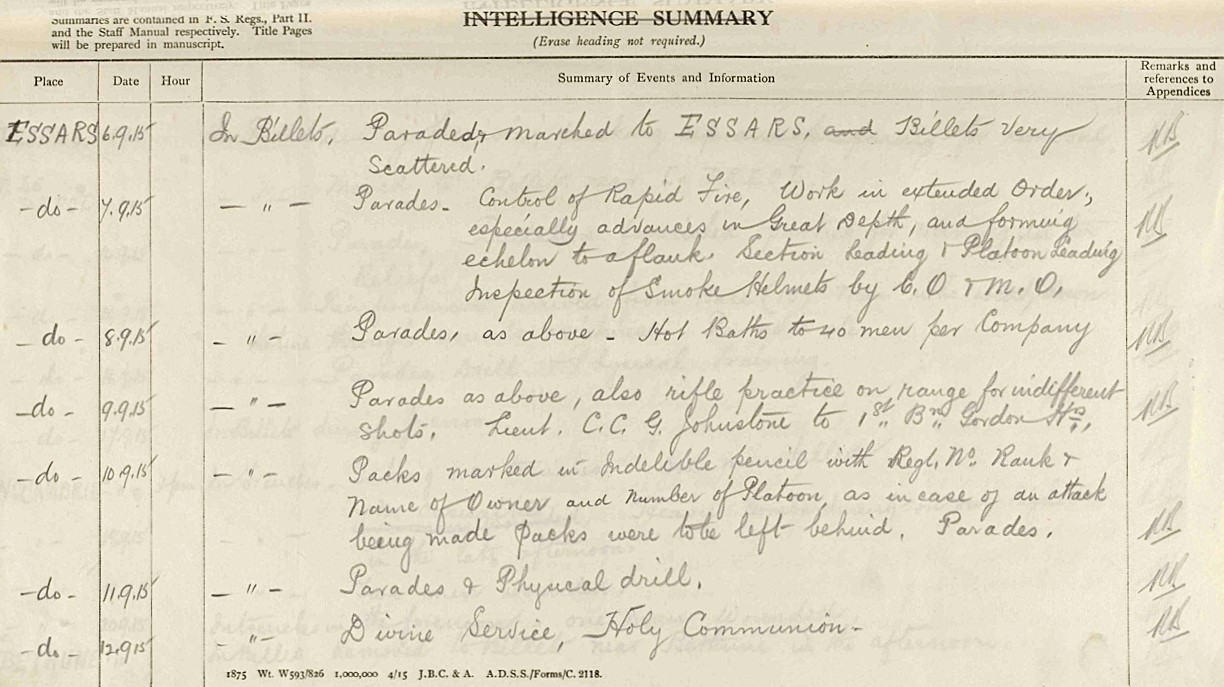 Summaries are contained in F. S. Regs., Part II.
and the Staff Manual respectively. Title Pages
will be prepared in manuscript.
INTELLIGENCE SUMMARY
(Erase heading not required.)
Place Date Hour Summary of Events and Information Remarks and references to Appendices
ESSARS 6.9.15 In Billets. Paraded & marched to ESSARS, and Billets Very
Scattered.
- do - 7.9.15 - " - Parades - Control of Rapid Fire, Work in extended Order,
especially advances in Great Depth, and forming
echelon to a flank. Section Leading & Platoon Leading
Inspection of Smoke Helmets by C.O & M.O.
- do - 8.9.15 - " - Parades, as above - Hot Baths to 40 men per Company
- do - 9.9.15 - " - Parades as above, also rifle practice on range for indifferent
shots. Lieut. C.C.G. Johnstone to 1st Bn. Gordon Hrs.
- do - 10.9.15 - " - Packs marked in Indelible pencil with Regl. No. Rank &
Name of Owner and Number of Platoon, as in case of an attack
being made packs were to be left behind. Parades.
- do - 11.9.15 - " - Parades & Physical drill.
- do - 12.9.15 - " - Divine Service, Holy Communion -
1875 Wt. W593/826 1,000,000 4/15 J.B.C. & A. A.D.S.S./Forms/C. 2118.